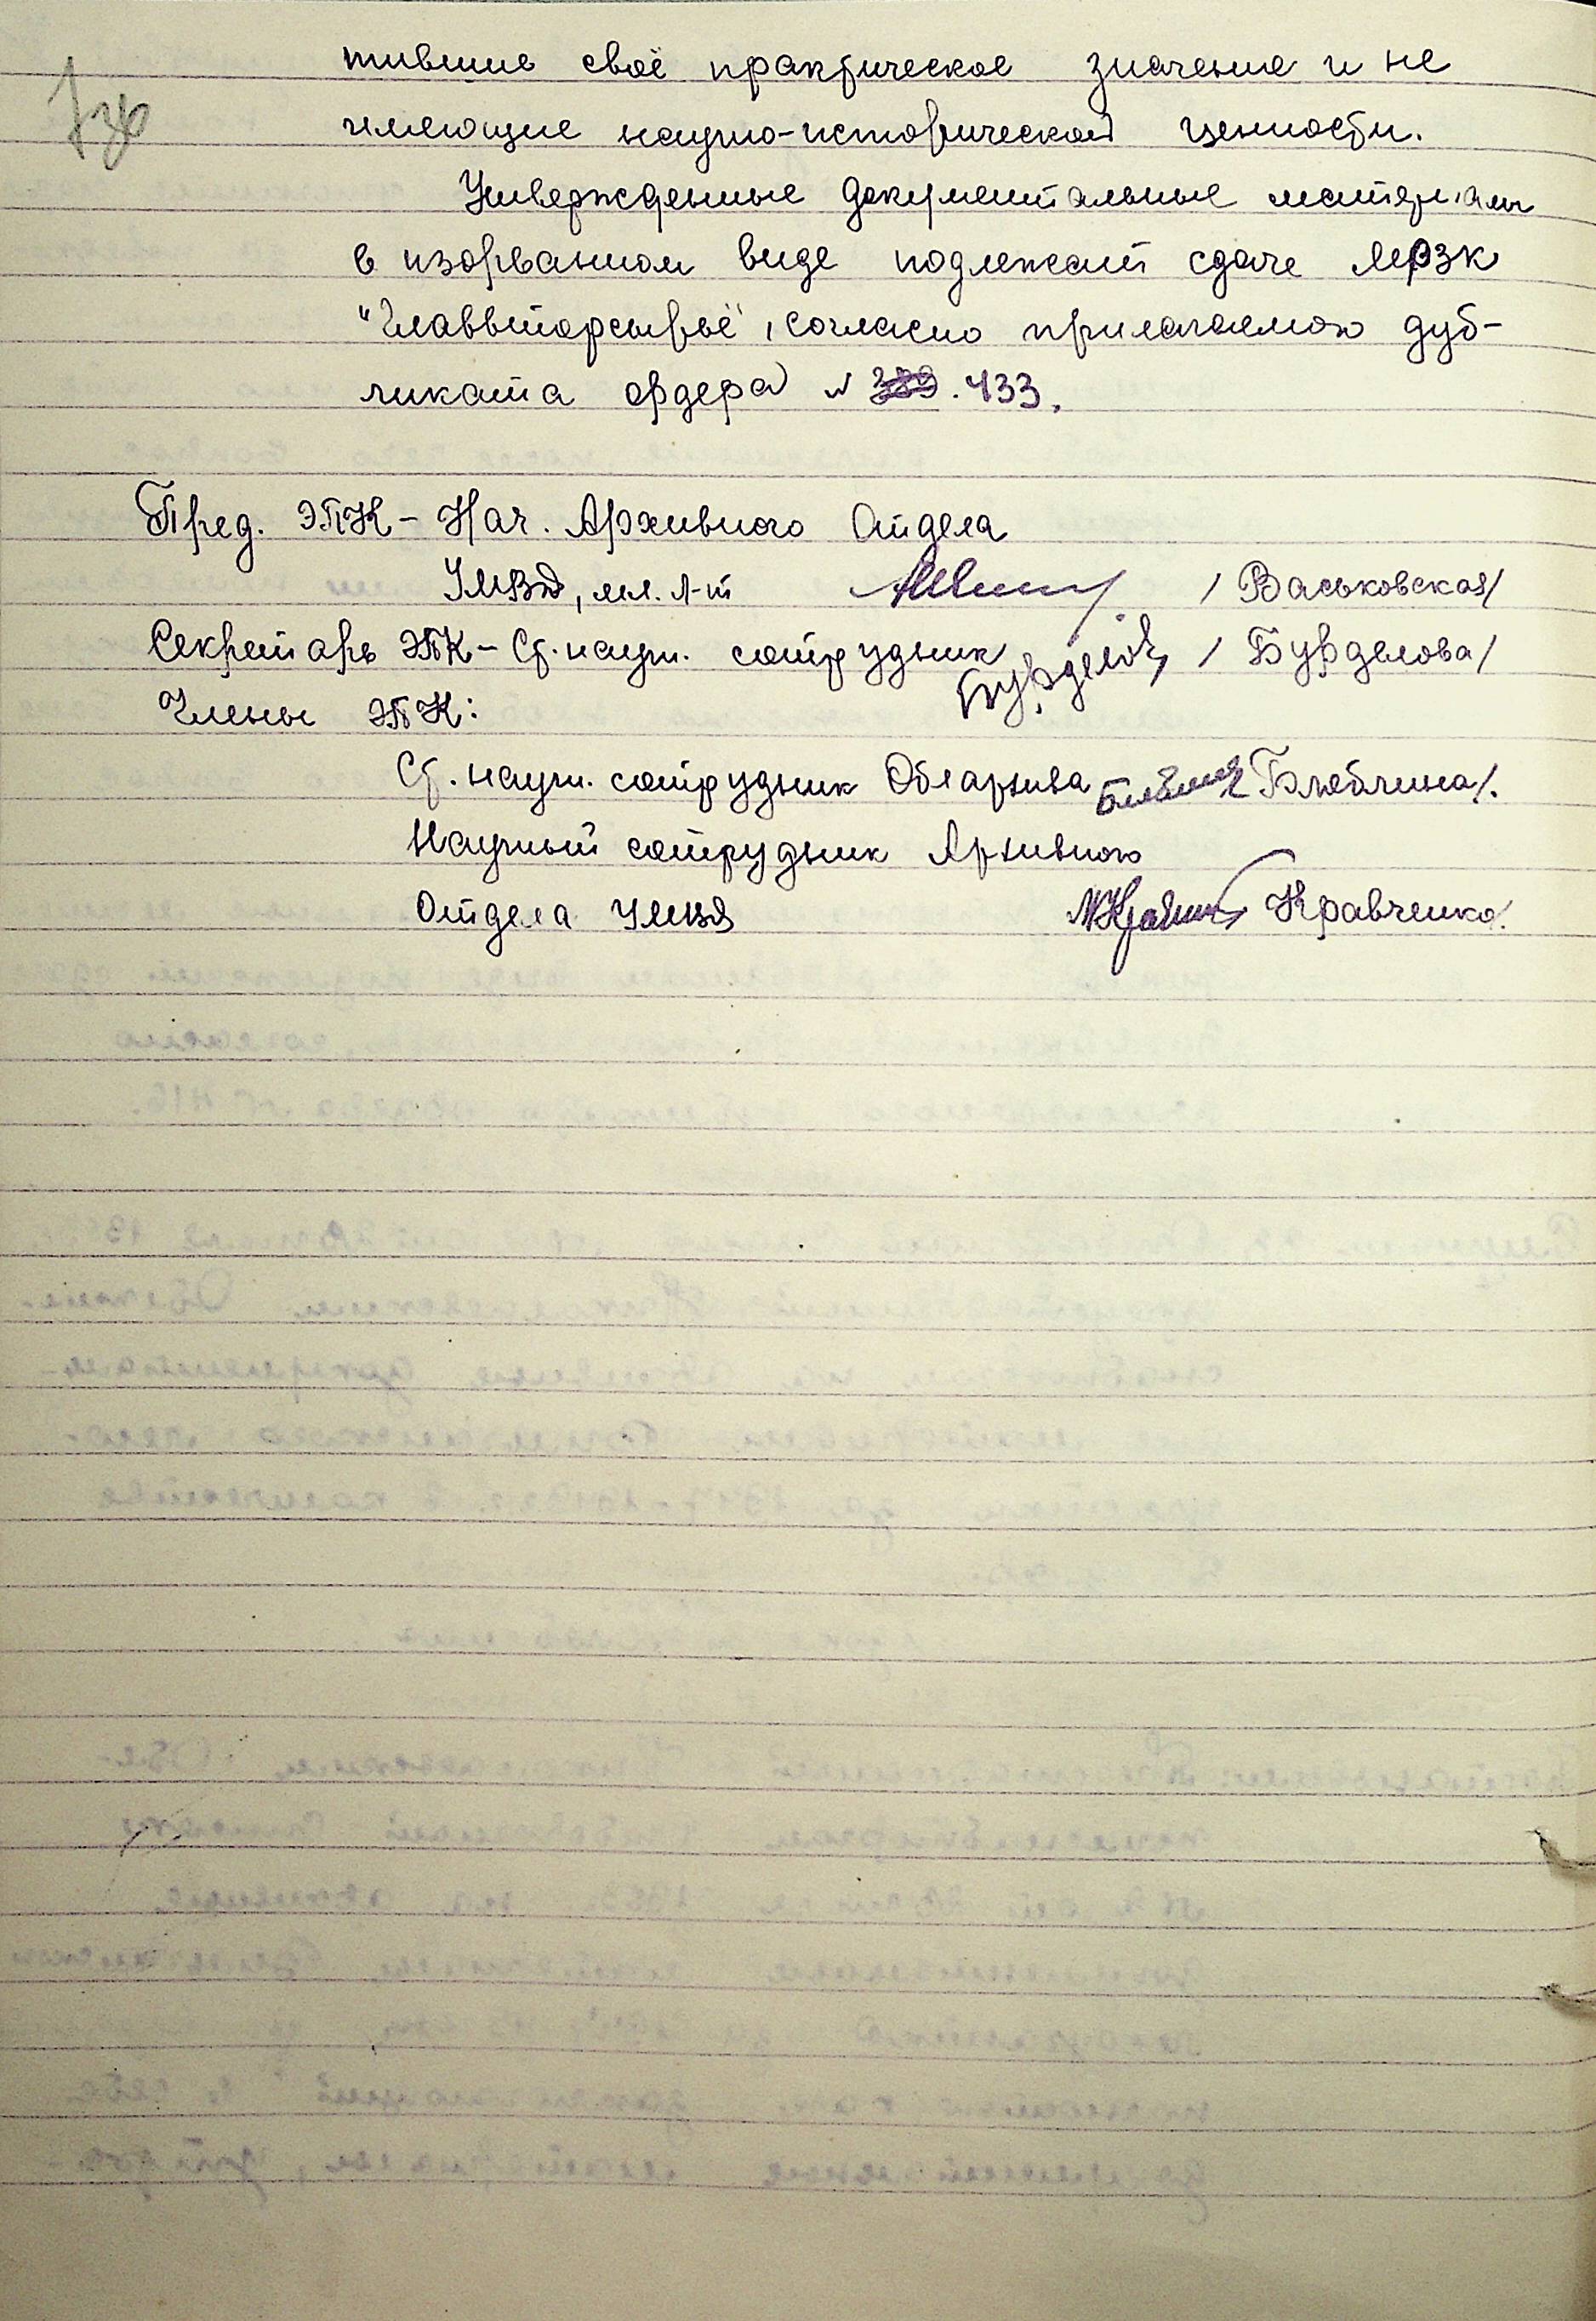 тившие своё практическое значение и не
имеющие научно-исторической ценности.
Утвержденные документальные материалы
в изорванном виде подлежат сдаче
"Главвторсырьё", согласно прилагаемого дуб-
ликата ордера № 389. 433.
Пред. ЭПК - Нач. Архивного Отдела
УМВД, мл. л-т / Васьковская/
Секретарь ЭПК - Ст. научн. сотрудник Бурделова / Бурделова/
Члены ЭПК:
Ст. научн. сотрудник Облархива
Научный сотрудник Архивного
Отдела УМВД Кравченко.